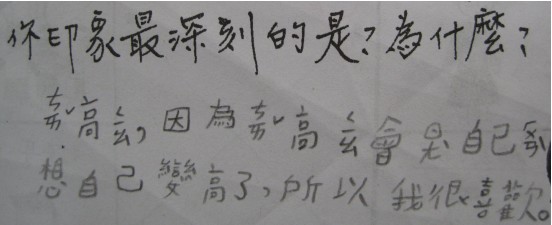 你印象最深刻的是?為什麼?
高, 因為高會是自己
想自己變高了,所以我很喜歡。